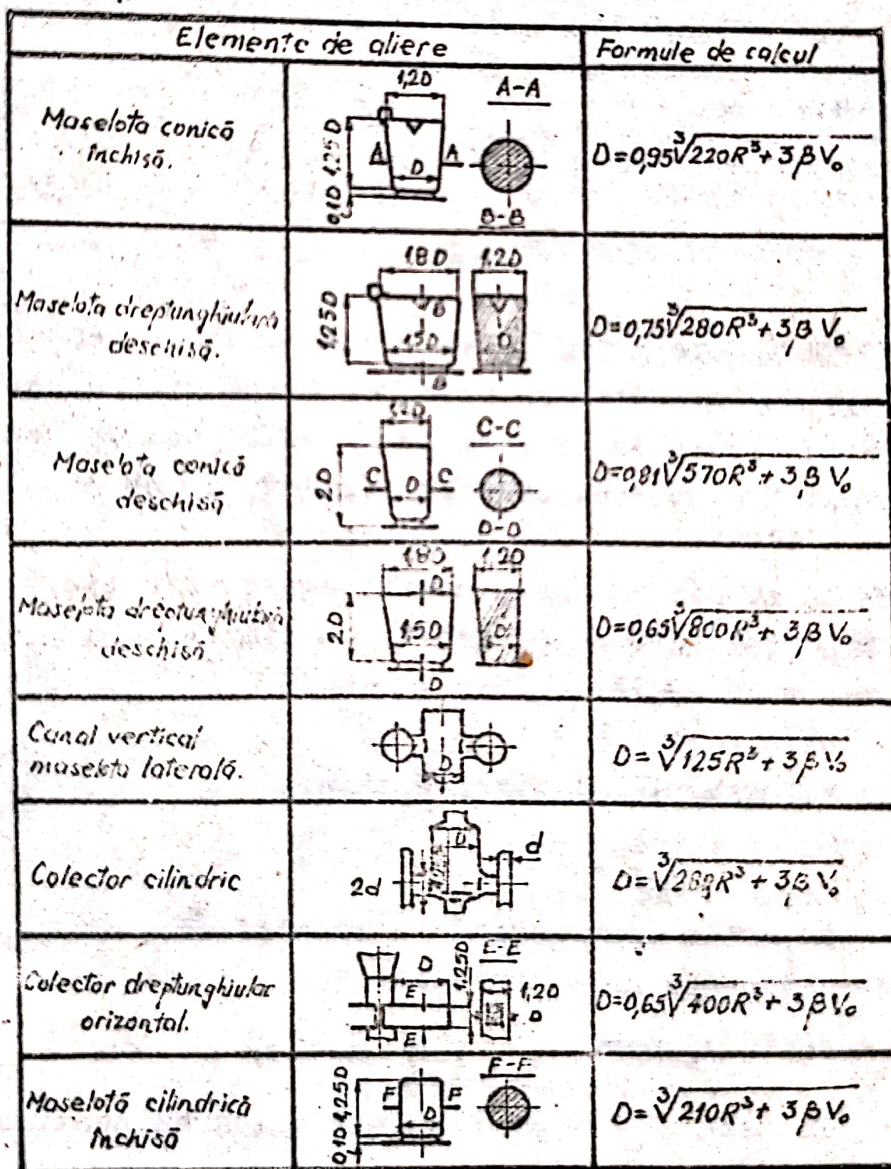 Elemente de aliere
Formule de calcul
Maselota conică
închisă.
1,2D
A-A
1,25D
0,1D
A
A
D
D=0,95∛220R³+3βV₀
B-B
Maselota dreptunghiulară
deschisă.
1,8D
1,2D
1,25D
B
1,5D
D
B
D=0,75∛280R³+3βV₀
Maselota conică
deschisă
1,2D
C-C
2D
C
D
C
D=0,81∛570R³+3βV₀
D-D
Maselota dreptunghiulară
deschisă
1,8D
1,2D
D
2D
1,5D
D
D
D=0,65∛800R³+3βV₀
Canal vertical
maselota laterală.
D
D=∛125R³+3βV₀
Colector cilindric
D
d
2d
D=∛ R³+3βV₀
Colector dreptunghiular
orizontal.
D
E-E
1,25D
1,2D
E
D
E
D=0,65∛400R³+3βV₀
Maselotă cilindrică
închisă
F-F
1,25D
0,1D
F
F
D
D=∛210R³+3βV₀